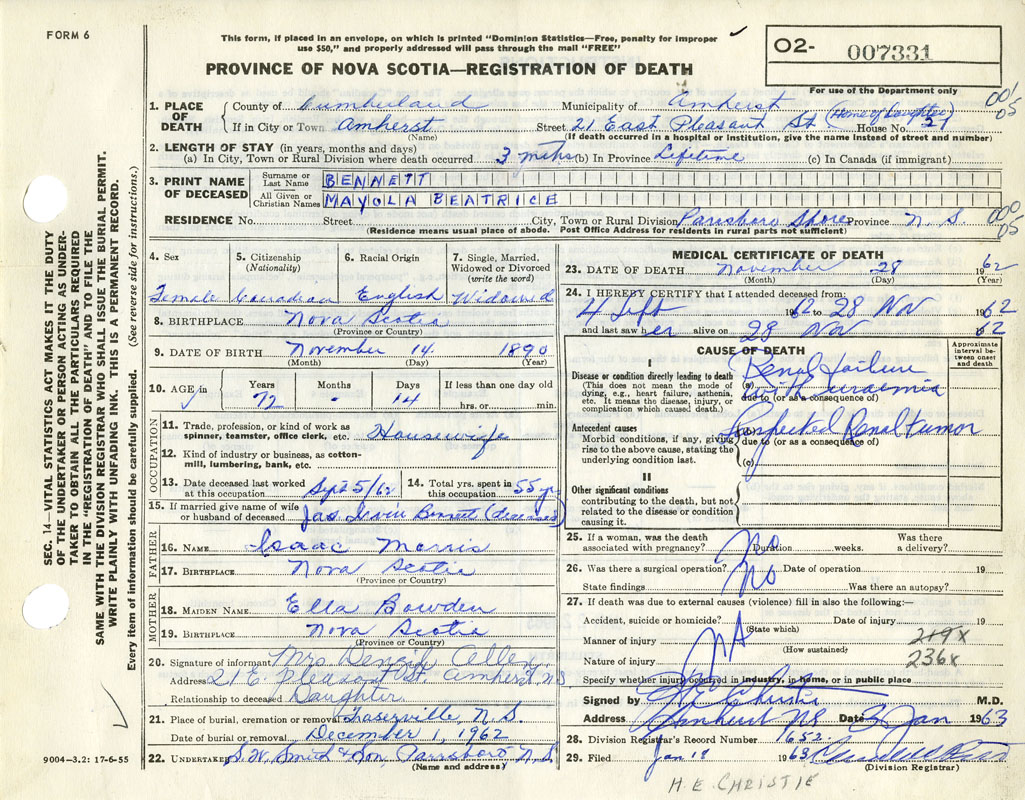 FORM 6
This form, if placed in an envelope, on which is printed "Dominion Statistics—Free, penalty for improper
use $50," and properly addressed will pass through the mail "FREE"
PROVINCE OF NOVA SCOTIA—REGISTRATION OF DEATH
O2- 007331
For use of the Department only
001/05
1. PLACE OF DEATH
County of Cumberland Municipality of Amherst
If in City or Town Amherst Street 21 East Pleasant St (Home of Daughter) House No. 27
(Name) (If death occurred in a hospital or institution, give the name instead of street and number)
2. LENGTH OF STAY (in years, months and days)
(a) In City, Town or Rural Division where death occurred 3 mths (b) In Province Lifetime (c) In Canada (if immigrant)
3. PRINT NAME OF DECEASED
Surname or Last Name BENNETT
All Given or Christian Names MAYOLA BEATRICE
RESIDENCE No. Street City, Town or Rural Division Parrsboro Shore Province N.S. 000/05
(Residence means usual place of abode. Post Office Address for residents in rural parts not sufficient)
4. Sex 5. Citizenship (Nationality) 6. Racial Origin 7. Single, Married, Widowed or Divorced (write the word)
Female Canadian English Widowed
8. BIRTHPLACE Nova Scotia
(Province or Country)
9. DATE OF BIRTH November 14 1890
(Month) (Day) (Year)
10. AGE in Years Months Days If less than one day old
72 - 14 hrs. or min.
OCCUPATION
11. Trade, profession, or kind of work as
spinner, teamster, office clerk, etc. Housewife
12. Kind of industry or business, as cotton-
mill, lumbering, bank, etc.
13. Date deceased last worked
at this occupation Sept 5/62 14. Total yrs. spent in
this occupation 55 yrs
15. If married give name of wife
or husband of deceased Jas Bennett (deceased)
FATHER
16. NAME Isaac Morris
17. BIRTHPLACE Nova Scotia
(Province or Country)
MOTHER
18. MAIDEN NAME Ella Bowden
19. BIRTHPLACE Nova Scotia
(Province or Country)
20. Signature of informant Mrs Allen
Address 21 E. Pleasant St. Amherst NS
Relationship to deceased Daughter
21. Place of burial, cremation or removal Fraserville, N.S.
Date of burial or removal December 1, 1962
22. UNDERTAKER S.W. Smith & Son, Parrsboro N.S.
(Name and address)
9004-3.2: 17-6-55
MEDICAL CERTIFICATE OF DEATH
23. DATE OF DEATH November 28 1962
(Month) (Day) (Year)
24. I HEREBY CERTIFY that I attended deceased from:
4 Sept 1962 to 28 Nov 1962
and last saw her alive on 28 Nov 62
CAUSE OF DEATH
Approximate interval between onset and death
I
Disease or condition directly leading to death
(This does not mean the mode of
dying, e.g., heart failure, asthenia,
etc. It means the disease, injury, or
complication which caused death.)
(a) Renal failure
with uraemia
due to (or as a consequence of)
Antecedent causes
Morbid conditions, if any, giving
rise to the above cause, stating the
underlying condition last.
(b) Suspected Renal tumor
due to (or as a consequence of)
(c)
II
Other significant conditions
contributing to the death, but not
related to the disease or condition
causing it.
25. If a woman, was the death
associated with pregnancy? No Duration weeks. Was there
a delivery?
26. Was there a surgical operation? No Date of operation 19
State findings Was there an autopsy?
27. If death was due to external causes (violence) fill in also the following:—
Accident, suicide or homicide? Date of injury 19
(State which)
NA
Manner of injury 219x
(How sustained)
Nature of injury 236x
Specify whether injury occurred in industry, in home, or in public place
Signed by H E Christie M.D.
Address Amherst NS Date 3 Jan 1963
28. Division Registrar's Record Number 1652
29. Filed Jan 18 1963
(Division Registrar)
H E CHRISTIE
SEC. 14—VITAL STATISTICS ACT MAKES IT THE DUTY
OF THE UNDERTAKER OR PERSON ACTING AS UNDER-
TAKER TO OBTAIN ALL THE PARTICULARS REQUIRED
IN THE "REGISTRATION OF DEATH" AND TO FILE THE
SAME WITH THE DIVISION REGISTRAR WHO SHALL ISSUE THE BURIAL PERMIT.
WRITE PLAINLY WITH UNFADING INK. THIS IS A PERMANENT RECORD.
Every item of information should be carefully supplied. (See reverse side for instructions.)